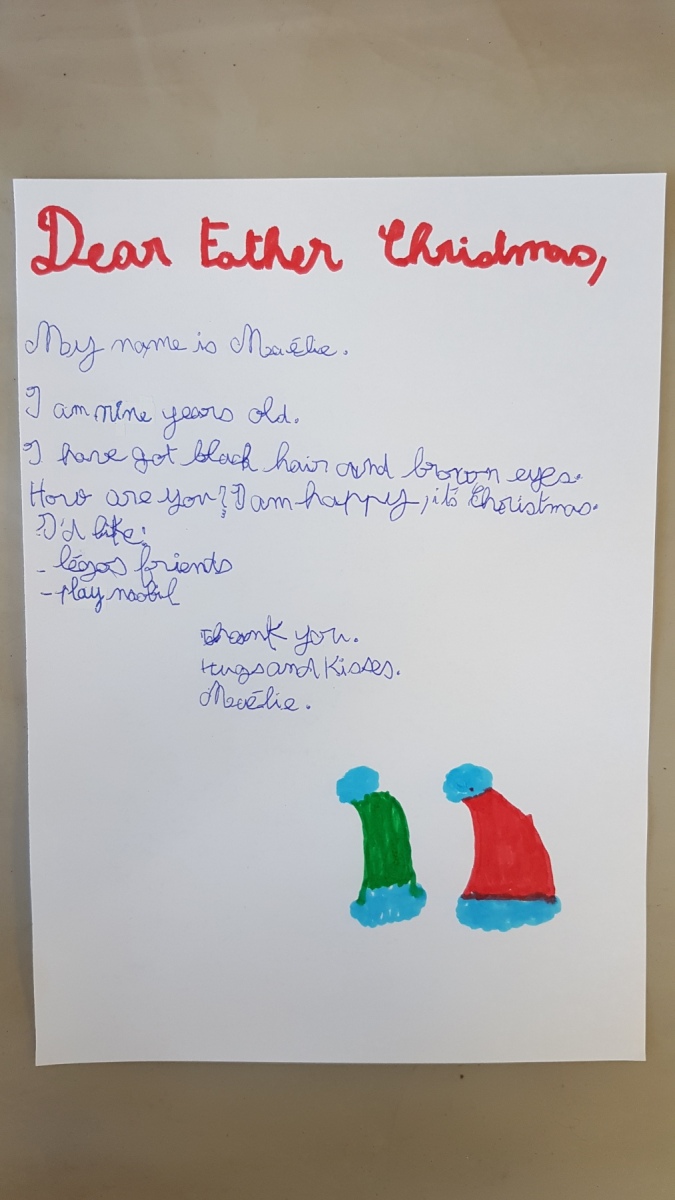 Dear Father Chridmas,
My name is Maélie.
I am nine years old.
I have got black hair and brown eyes.
How are you? I am happy, it's Christmas.
I'd like:
- légos frients
- play mobil
Thank you.
Hugs and Kisses.
Maélie.